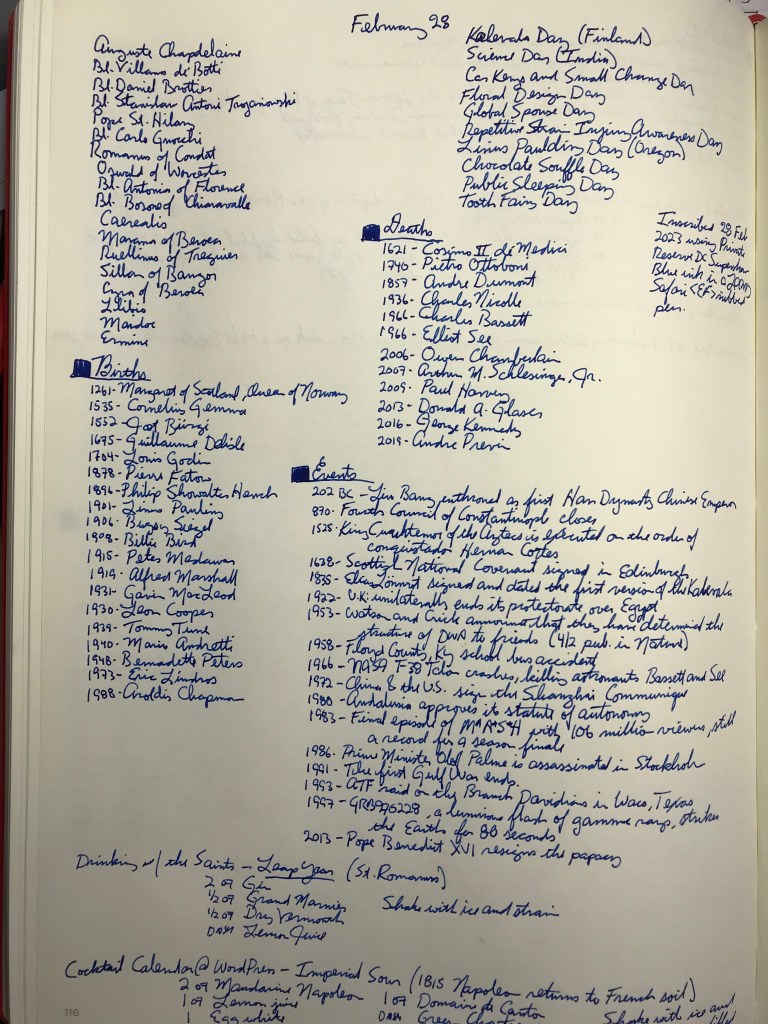 February 28
Auguste Chapdelaine
Bl. Villano de Botti
Bl. Daniel Brottier
Bl. Stanislaw Antoni Trojanowski
Pope St. Hilary
Bl. Carlo Gnocchi
Romanus of Condat
Oswald of Worcester
Bl. Antonia of Florence
Bl. of Chiaravalle
Caerealis
Marana of Beroea
Ruellinus of Treguier
Sillan of Bangor
Cyra of Beroea
Llibio
Maidoc
Ermine
Kalevala Day (Finland)
Science Day (India)
Car Keys and Small Change Day
Floral Design Day
Global Spouse Day
Repetitive Strain Injury Awareness Day
Linus Paulding Day (Oregon)
Chocolate Souffle Day
Public Sleeping Day
Tooth Fairy Day
Inscribed 28 Feb
2023 using Private
Reserve DC Supershow
Blue ink in a
Safari <EF> nibbed
pen.
Deaths
1621 - Cosimo II de Medici
1740 - Pietro Ottoboni
1857 - Andre Dumont
1936 - Charles Nicolle
1966 - Charles Bassett
1966 - Elliot See
2006 - Owen Chamberlain
2007 - Arthur M. Schlesinger, Jr.
2009 - Paul Harvey
2013 - Donald A. Glaser
2016 - George Kennedy
2019 - Andre Previn
Births
1261 - Margaret of Scotland, Queen of Norway
1535 - Cornelius Gemma
1552 - Joost Bürgi
1675 - Guillaume Delisle
1704 - Louis Godin
1878 - Pierre Fatou
1896 - Philip Showalter Hench
1901 - Linus Pauling
1906 - Bugsy Siegel
1908 - Billie Bird
1915 - Peter Medawar
1919 - Alfred Marshall
1931 - Gavin MacLeod
1930 - Leon Cooper
1939 - Tommy Tune
1940 - Mario Andretti
1948 - Bernadette Peters
1973 - Eric Lindros
1988 - Aroldis Chapman
Events
202 BC - Liu Bang enthroned as first Han Dynasty Chinese Emperor
870 - Fourth Council of Constantinople closes
1525 - King Cuauhtemoc of the Aztecs is executed on the order of
conquistador Hernan Cortes
1638 - Scottish National Covenant signed in Edinburgh
1835 - Elias Lönnrot signed and dated the first version of the Kalevala
1922 - U.K. unilaterally ends its protectorate over Egypt
1953 - Watson and Crick announce that they have determined the
structure of DNA to friends (4/2 pub. in Nature)
1958 - Floyd County, Ky school bus accident
1966 - NASA T-38 Talon crashes, killing astronauts Bassett and See
1972 - China & the U.S. sign the Shanghai Communique
1980 - Andalusia approves its statute of autonomy
1983 - Final episode of M*A*S*H with 106 million viewers, still
a record for a season finale
1986 - Prime Minister Olof Palme is assassinated in Stockholm
1991 - The first Gulf War ends.
1993 - ATF raid on the Branch Davidians in Waco, Texas
1997 - GRB970228, a luminous flash of gamma rays, strikes
the Earth for 80 seconds
2013 - Pope Benedict XVI resigns the papacy
Drinking w/ the Saints - Leap Year (St. Romanus)
2 oz Gin
1/2 oz Grand Marnier
1/2 oz Dry Vermouth
Dash Lemon Juice
Shake with ice and strain
Cocktail Calendar @ WordPress - Imperial Sour (1815 Napoleon returns to French soil)
2 oz Mandarine Napoleon
1 oz Lemon juice
1 Egg white
1 oz Domaine de Canton
Dash Green
Shake with ice and
116